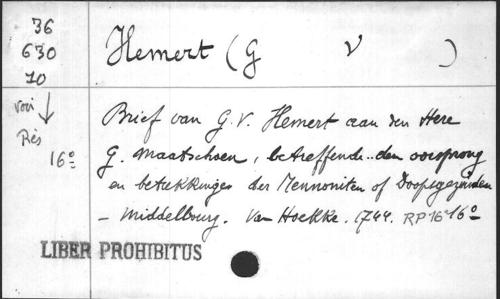 36
630
10
voir
Rés
16º
Hemert (G V )
Brief van G. V. Hemert aan den Here
G. Maatschoen, betreffende.. den oorsprong
en betrekkinges der Mennoniten of Doopsgezinden
- Middelbourg. Van Hoekke. 1744. RP 16º 16º
LIBER PROHIBITUS